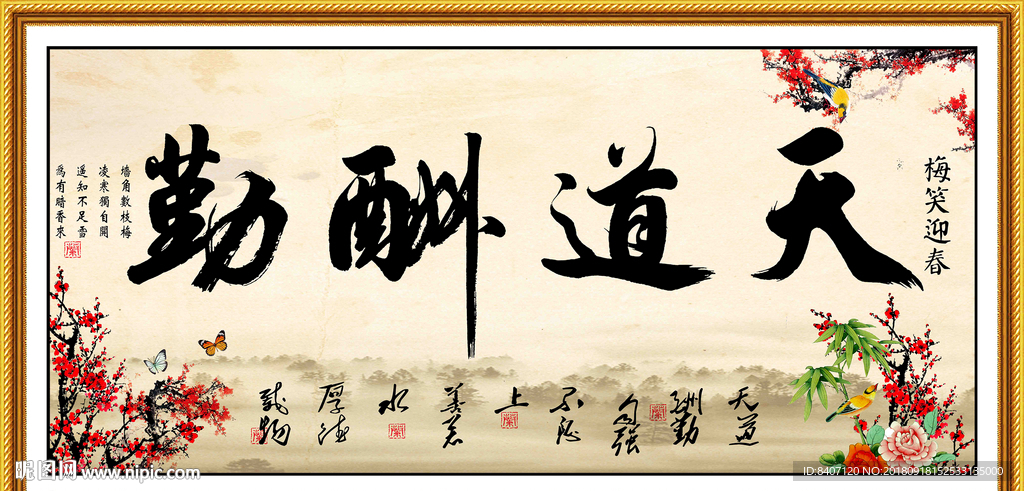 梅笑迎春
天道酬勤
墙角數枝梅
凌寒獨自開
遥知不足雪
為有暗香來
天道
酬勤
自强
不息
上
善若
水
厚德
载物
昵图网 www.nipic.com
ID:8407120 NO:20180918152533135000